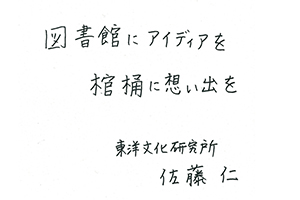 図書館にアイディアを
棺桶に想い出を
東洋文化研究所
佐藤 仁